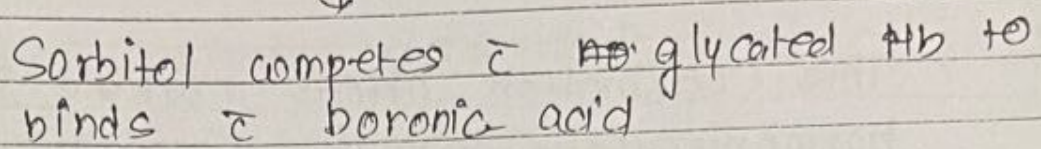 Sorbitol competes c̄ glycated Hb to
binds c̄ boronic acid